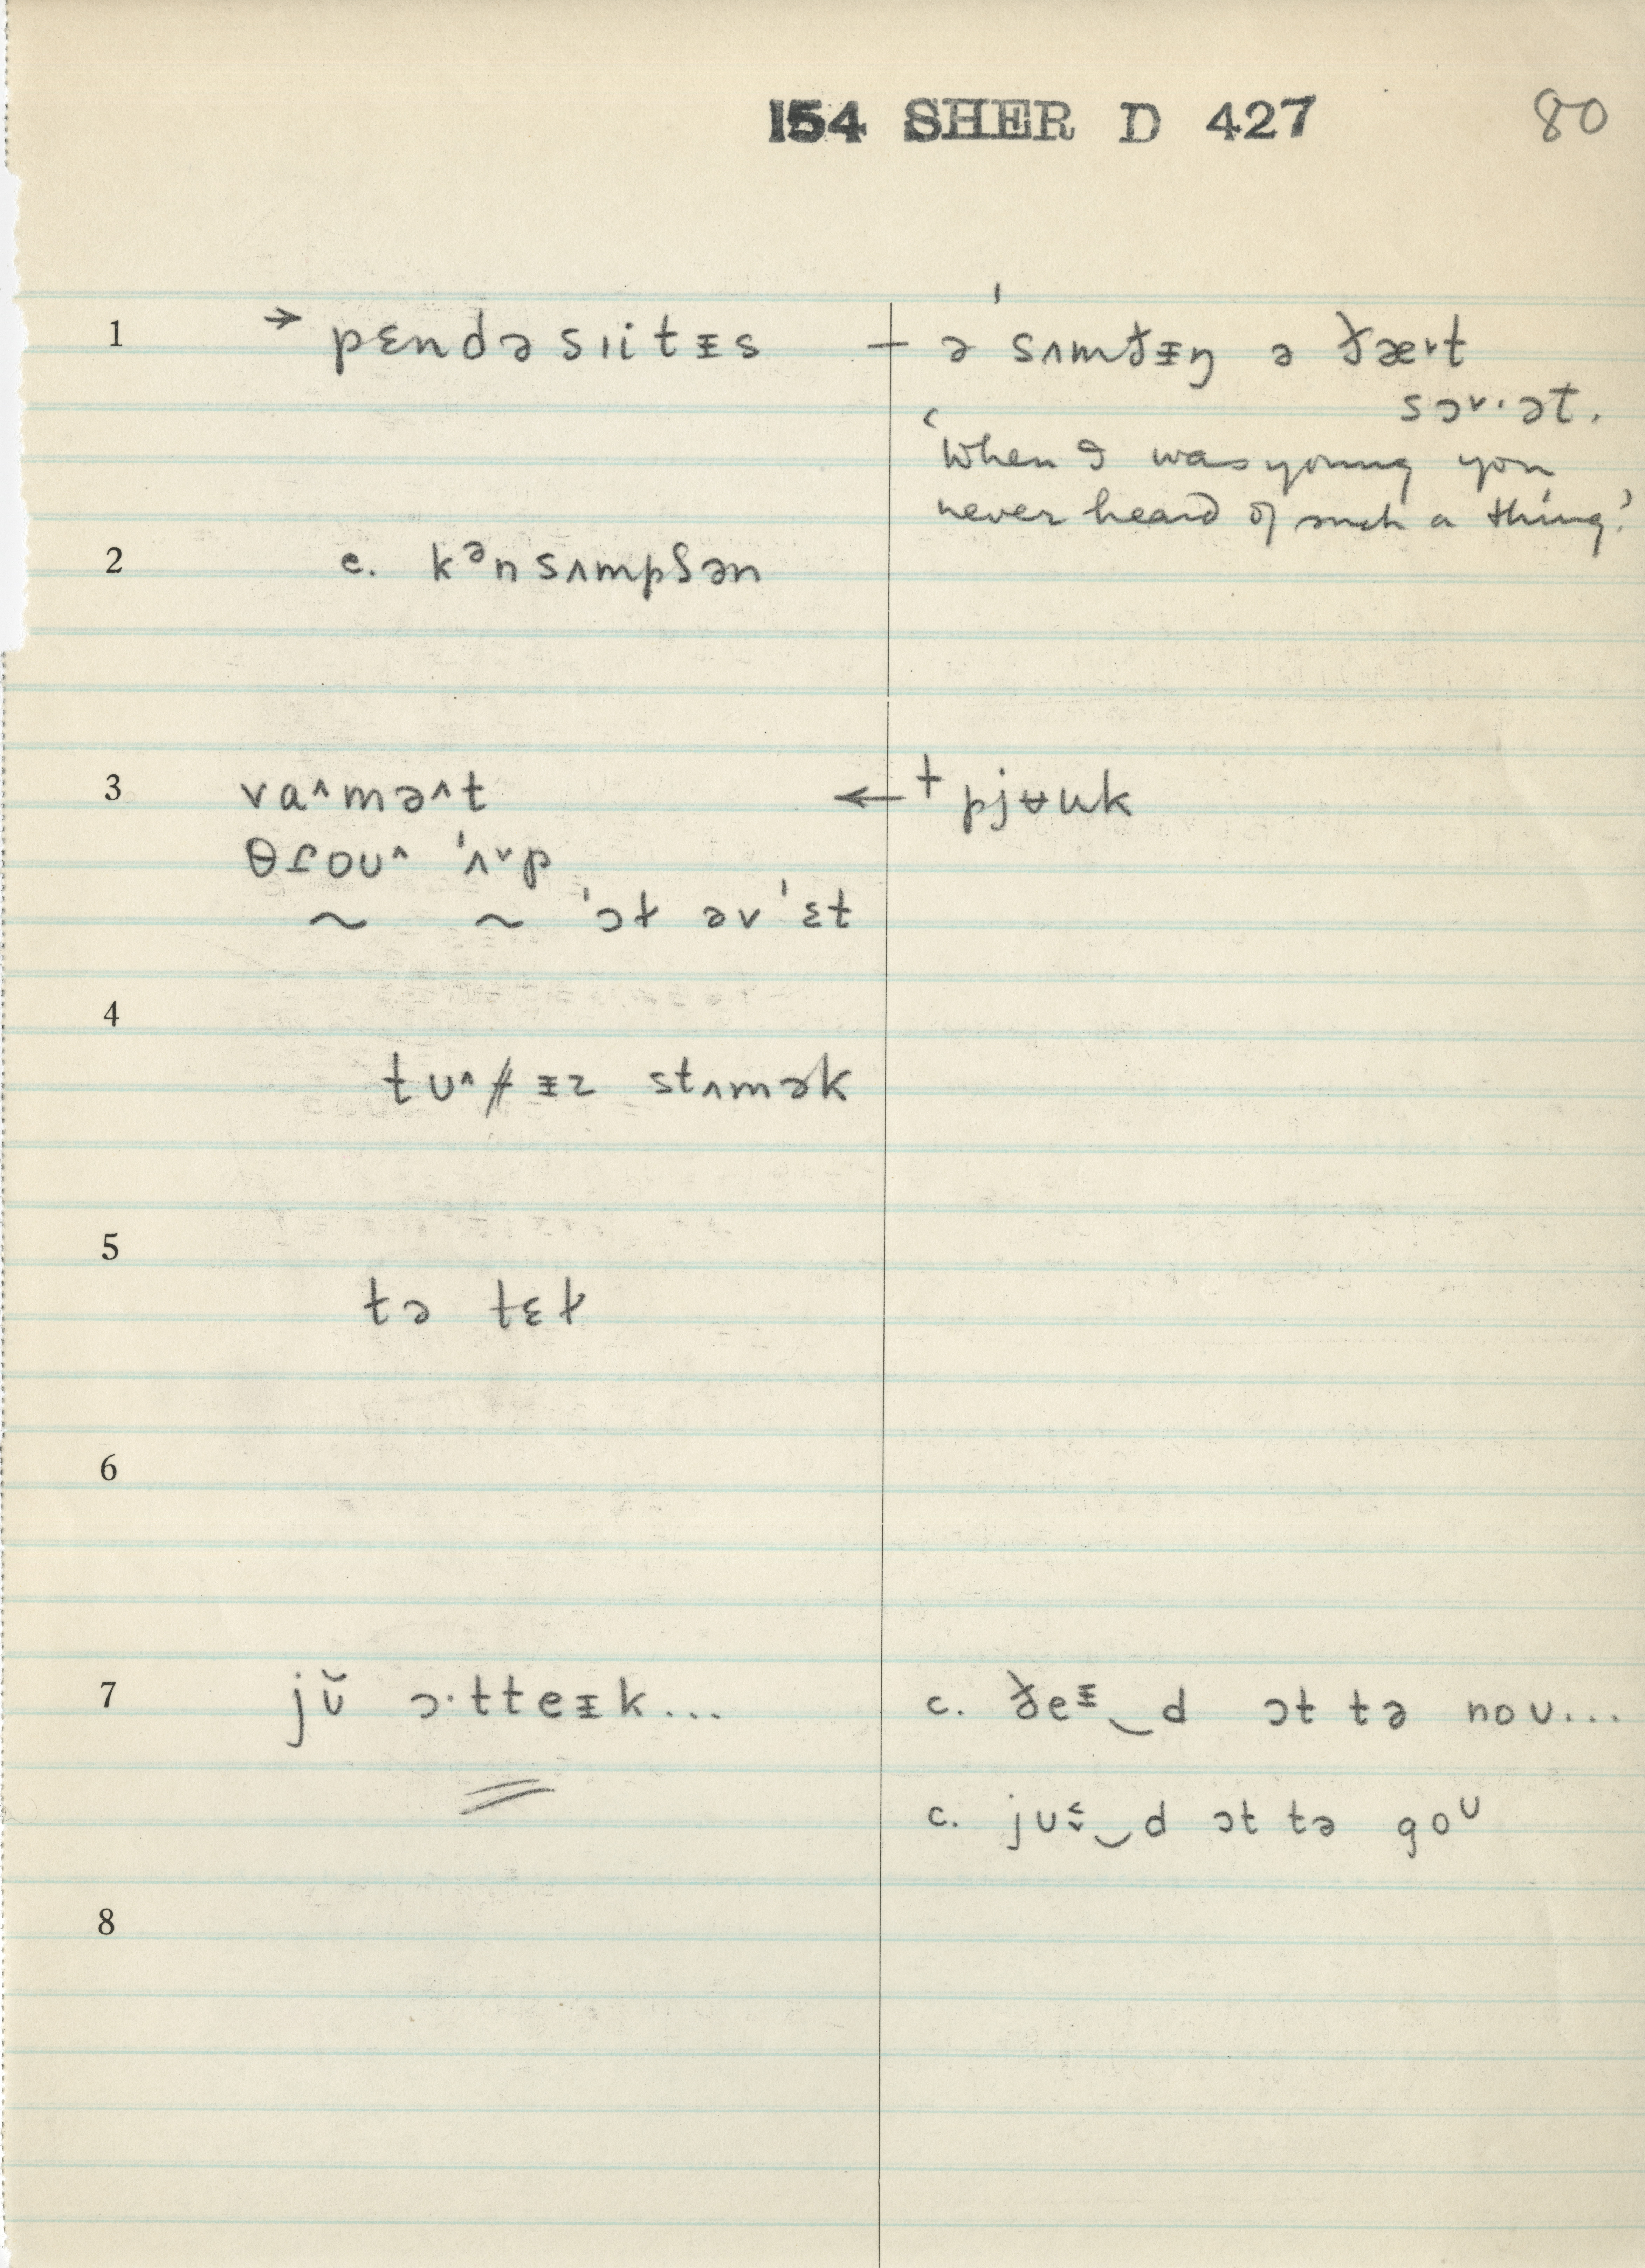 154 SHER D 427 80
1 → pɛndəsɪitᵻs — ə sʌmðᵻŋ ə ðæ˔t
sɔ˞·ət.
'When I was young you
never heard of such a thing.'
2 e. kᵊnsʌmpʃən
3 va^mə^t ←+ pjʉuk
θɾoʊ^ 'ʌ˅p
~ ~ 'ɔɫ əv 'ɛt
4
tʊ^ɾᵻz stʌmək
5
tə tɛɫ
6
7 jŭ ɔ·tteᵻk... c. ðeᵻ‿d ɔt tə noʊ...
c. jʊ‿d ɔt tə goᶷ
8